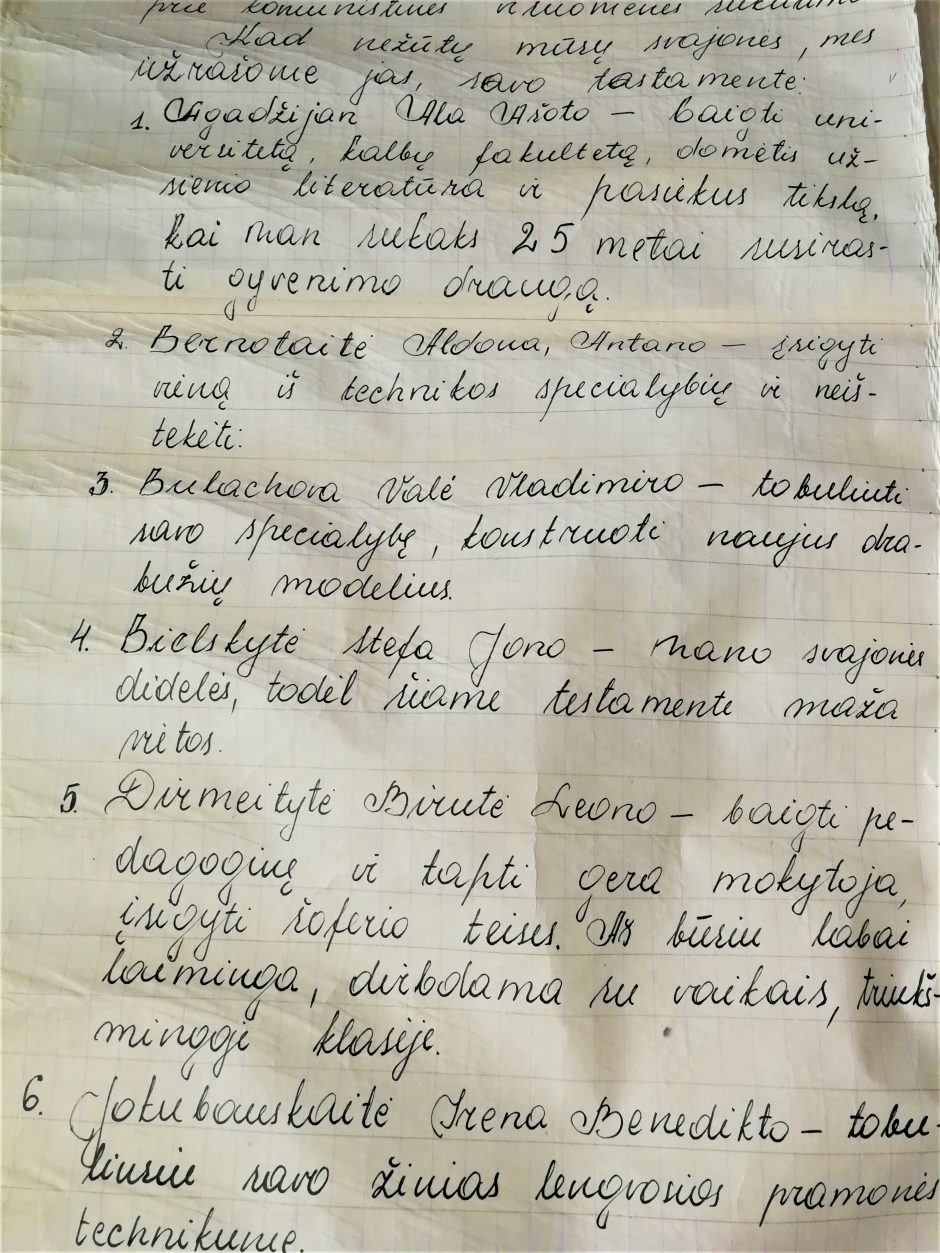 prie komunistinės visuomenės sukūrimo
Kad nežūtų mūsų svajonės, mes
užrašome jas, savo testamente:
1. Agadžijan Ala Ašoto – baigti uni-
versitetą, kalbų fakultetą, domėtis už-
sienio literatūra ir pasiekus tikslą,
kai man sukaks 25 metai susiras-
ti gyvenimo draugą.
2. Bernotaitė Aldona, Antano – įsigyti
vieną iš technikos specialybių ir neiš-
tekėti.
3. Bulachova Valė Vladimiro – tobulinti
savo specialybę, konstruoti naujus dra-
bužių modelius.
4. Bielskytė Stefa Jono – mano svajonės
didelės, todėl šiame testamente maža
vietos.
5. Dirmeitytė Birutė Leono – baigti pe-
dagoginę ir tapti gera mokytoja,
įsigyti šoferio teises. Aš būsiu labai
laiminga, dirbdama su vaikais, triukš-
mingoje klasėje.
6. Jokubauskaitė Irena Benedikto – tobu-
linsiu savo žinias lengvosios pramonės
technikume.